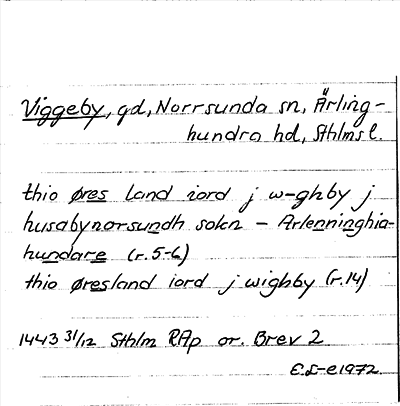 Viggeby, gd, Norrsunda sn, Ärling-
hundra hd, Sthlms l.
thio øres land iord j w-ghby j
husabynorsundh sokn - Arlenninghia-
hundare (r.5-6)
thio øresland iord j wighby (r.14)
1443 31/12 Sthlm RAp or. Brev 2
E.L-e 1972.